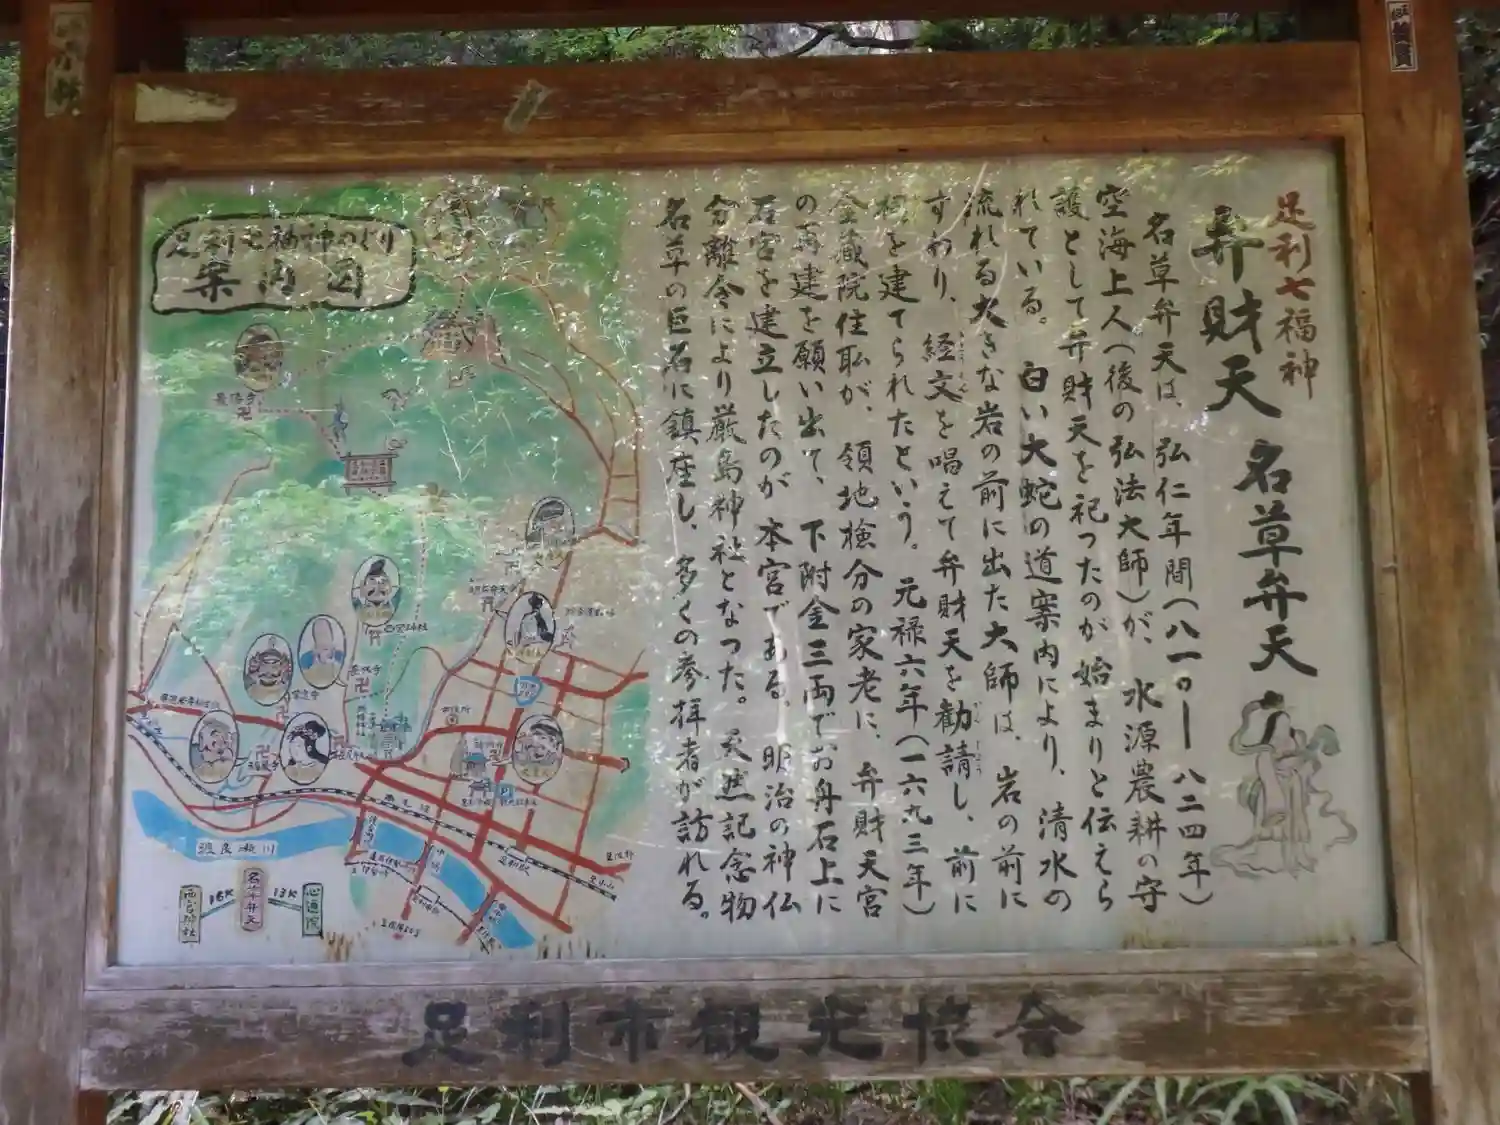 足利七福神
弁財天 名草弁天
名草弁天は、弘仁年間(八一〇ー八二四年)
空海上人(後の弘法大師)が、水源農耕の守
護として弁財天を祀ったのが始まりと伝えら
れている。白い大蛇の道案内により、清水の
流れる大きな岩の前に出た大師は、岩の前に
すわり、経文を唱えて弁財天を勧請し、前に
祠を建てられたという。元禄六年(一六九三年)
金蔵院住職が、領地検分の家老に、弁財天宮
の再建を願い出て、下附金三両でお舟石上に
石宮を建立したのが本宮である。明治の神仏
分離令により厳島神社となった。天然記念物
名草の巨石に鎮座し、多くの参拝者が訪れる。
足利七福神めぐり
案内図
渡良瀬川
西宮神社
16K
名草弁天
13K
心通院
足利市観光協会